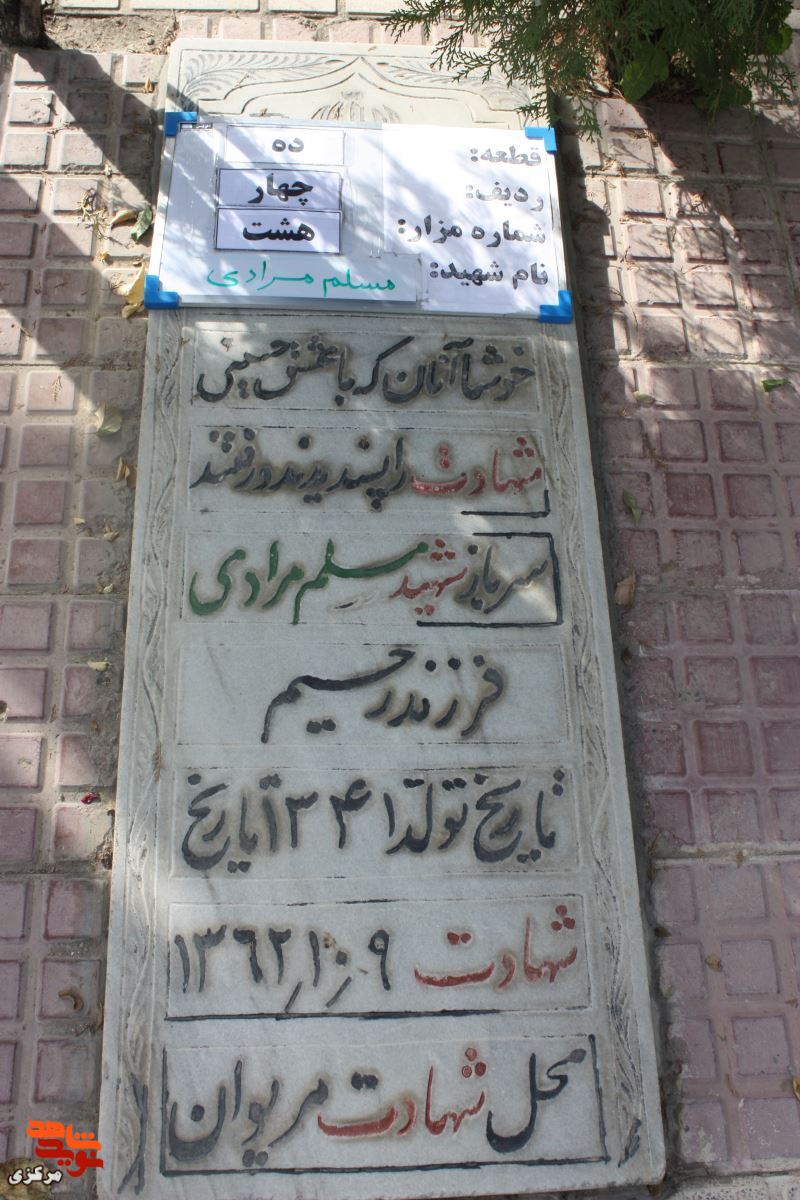 قطعه: ده
ردیف: چهار
شماره مزار: هشت
نام شهید: مسلم مرادی
خوشا آنان که با عشق حسینی
شهادت را پسندیدند و رفتند
سرباز شهید مسلم مرادی
فرزند رحیم
تاریخ تولد ۱۳۴۱ تاریخ
شهادت ۱۳۶۲٫۱۰٫۹
محل شهادت مریوان
نوید شاهد
مرکزی